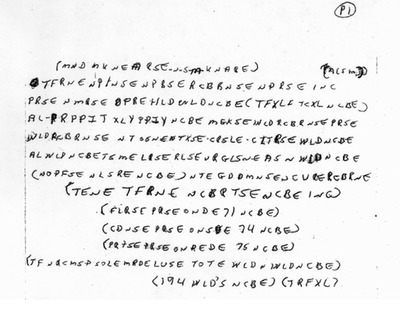 (P1)
(MND MKNEARSE-N-S-M-KNARE) (ALSM)
TFRNE NPTNSE NPBSERCBRNSE NPRSE INC
PRSE NMRSE OPREHLD WLD NCBE (TFXLF TCXL NCBE)
AL-PRPPIT XLY PPIY NCBE MGKSE WLDRCBRNSE PRSE
WLDRCBRNSE NTOSNE NTXSE-CRSLE-CITRSE WLD NCBE
ALWLD NCBE TSMELRSE RLSE NRGLSNE ASN WLD NCBE
(NOPFSE NLSRE NCBE) NTEGDDMNSENCURERCBRNE
(TENE TFRNE NCBRTSE NCBE ING)
(FIRSE PRSE ONDE 71 NCBE)
(CDNSE PRSE ONSDE 74 NCBE)
(PRTSE PRSE ONREDE 75 NCBE)
(TFNRCMSP SOLE MRDE LUSE TOTE WLD N WLD NCBE)
(194 WLD'S NCBE) (TRFXL)